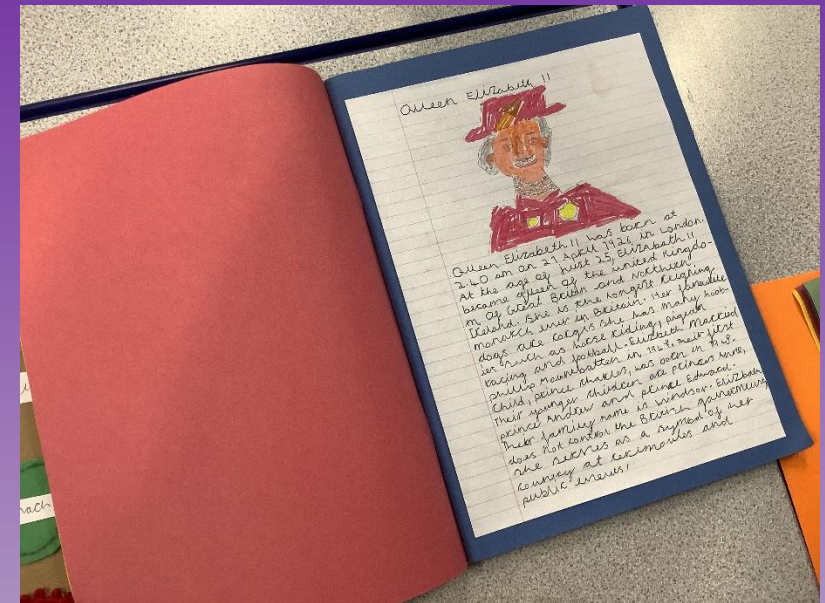 Queen Elizabeth II
Queen Elizabeth II was born at
2.40 am on 21 April 1926 in London.
At the age of just 25, Elizabeth II
became queen of the united kingdo-
m of Great Britain and Northern
Ireland. She is the longest reigning
monarch ever in Britain. Her favourite
dogs are corgis she has many hobb-
ies such as horse riding, pigeon
racing and football. Elizabeth Married
philip Mountbatten in 1947. Their first
Child, prince Charles, was born in 1948.
Their younger children are princess Anne,
prince Andrew and prince Edward.
Their family name is windsor. Elizbeth
does not control the British
she serves as a symbol of her
country at ceremonies and
public events!
nach